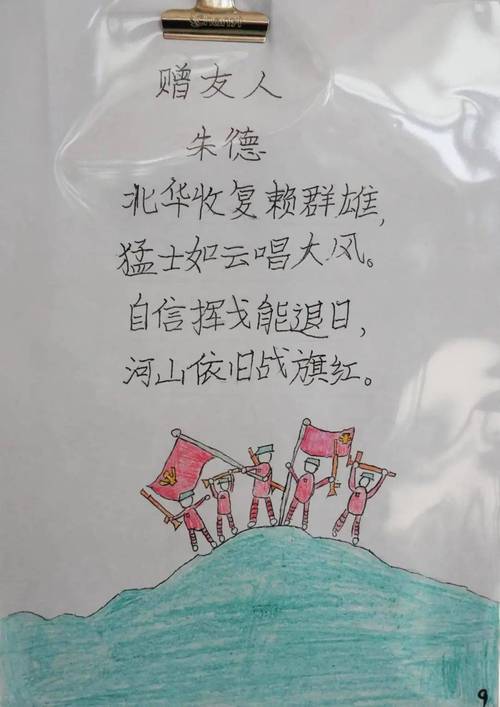 赠友人
朱德
北华收复赖群雄,
猛士如云唱大风。
自信挥戈能退日,
河山依旧战旗红。
9